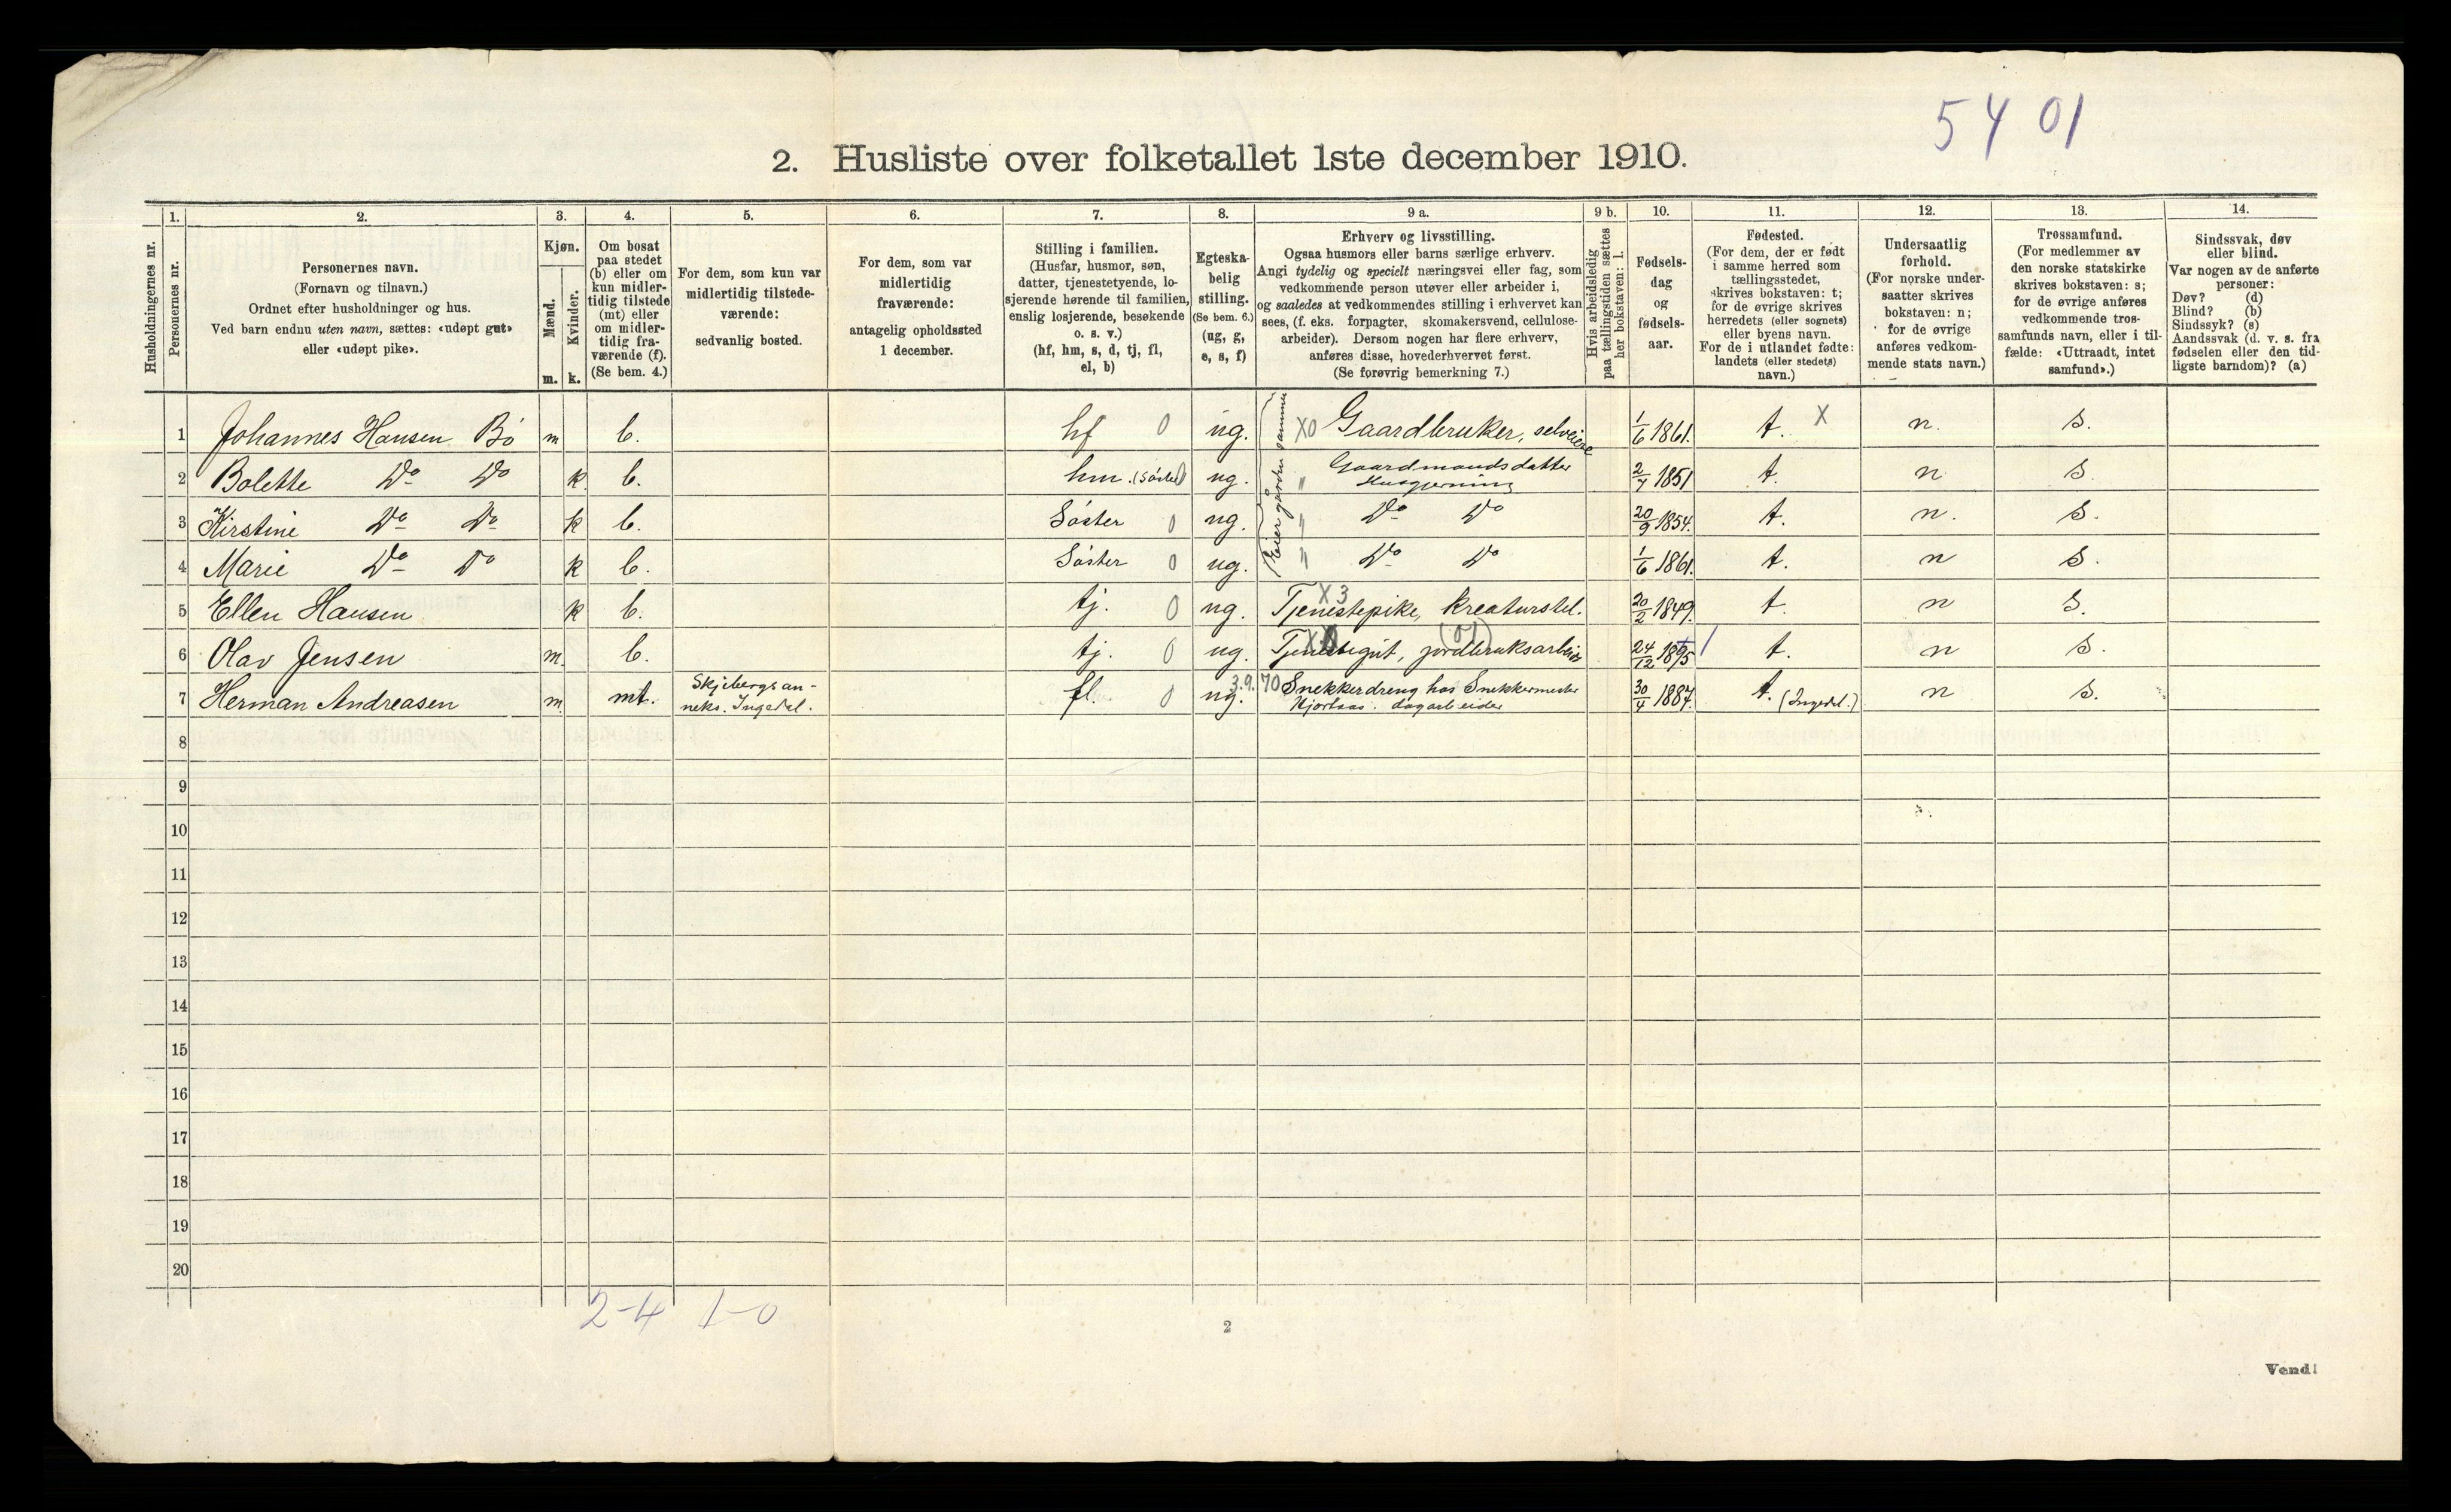 5401
2. Husliste over folketallet 1ste december 1910.
Husholdningernes nr.
1. Personernes nr.
2. Personernes navn.
(Fornavn og tilnavn.)
Ordnet efter husholdninger og hus.
Ved barn endnu uten navn, sættes: «udøpt gut»
eller «udøpt pike».
3. Kjøn.
Mænd. m.
Kvinder. k.
4. Om bosat
paa stedet
(b) eller om
kun midler-
tidig tilstede
(mt) eller
om midler-
tidig fra-
værende (f).
(Se bem. 4.)
5. For dem, som kun var
midlertidig tilstede-
værende:
sedvanlig bosted.
6. For dem, som var
midlertidig
fraværende:
antagelig opholdssted
1 december.
7. Stilling i familien.
(Husfar, husmor, søn,
datter, tjenestetyende, lo-
sjerende hørende til familien,
enslig losjerende, besøkende
o. s. v.)
(hf, hm, s, d, tj, fl,
el, b)
8. Egteska-
belig
stilling.
(Se bem. 6.)
(ug, g,
e, s, f)
9 a. Erhverv og livsstilling.
Ogsaa husmors eller barns særlige erhverv.
Angi tydelig og specielt næringsvei eller fag, som
vedkommende person utøver eller arbeider i,
og saaledes at vedkommendes stilling i erhvervet kan
sees, (f. eks. forpagter, skomakersvend, cellulose-
arbeider). Dersom nogen har flere erhverv,
anføres disse, hovederhvervet først.
(Se forøvrig bemerkning 7.)
9 b. Hvis arbeidsledig
paa tællingstiden sættes
her bokstaven: l.
10. Fødsels-
dag
og
fødsels-
aar.
11. Fødested.
(For dem, der er født
i samme herred som
tællingsstedet,
skrives bokstaven: t;
for de øvrige skrives
herredets (eller sognets)
eller byens navn.
For de i utlandet fødte:
landets (eller stedets)
navn.)
12. Undersaatlig
forhold.
(For norske under-
saatter skrives
bokstaven: n;
for de øvrige
anføres vedkom-
mende stats navn.)
13. Trossamfund.
(For medlemmer av
den norske statskirke
skrives bokstaven: s;
for de øvrige anføres
vedkommende tros-
samfunds navn, eller i til-
fælde: «Uttraadt, intet
samfund».)
14. Sindssvak, døv
eller blind.
Var nogen av de anførte
personer:
Døv? (d)
Blind? (b)
Sindssyk? (s)
Aandssvak (d. v. s. fra
fødselen eller den tid-
ligste barndom)? (a)
Eier gården sammen
1 Johannes Hansen Bö m b. hf 0 ug. X0 Gaardbruker, selveiere 1/6 1861. t. X n. s.
2 Bolette Do Do k b. hm. (Söster) 0 ug. " Gaardmandsdatter Husgjerning 2/7 1851 t. n s.
3 Kirstine Do Do k b. Söster 0 ug. " Do Do 20/9 1854. t. n. s.
4 Marie Do Do k b. Söster 0 ug. " Do Do 1/6 1861. t. n s.
5 Ellen Hansen k b. tj. 0 ug. X3 Tjenestepike, kreaturstel. 20/2 1849. t. n s.
6 Olav Jensen m. b. tj. 0 ug. Tjenestegut, jordbruksarbeid (01) 24/12 1895 t. n s.
7 Herman Andreasen m. mt. Skjebergs an-
neks. Ingedal. fl. 0 ug. 3.9. 70 Snekkerdreng hos Snekkermester
Hjortaas. dagarbeider 30/4 1887. t. (Ingedal.) n s.
8
9
10
11
12
13
14
15
16
17
18
19
20
2-4 1-0
2
Vend!